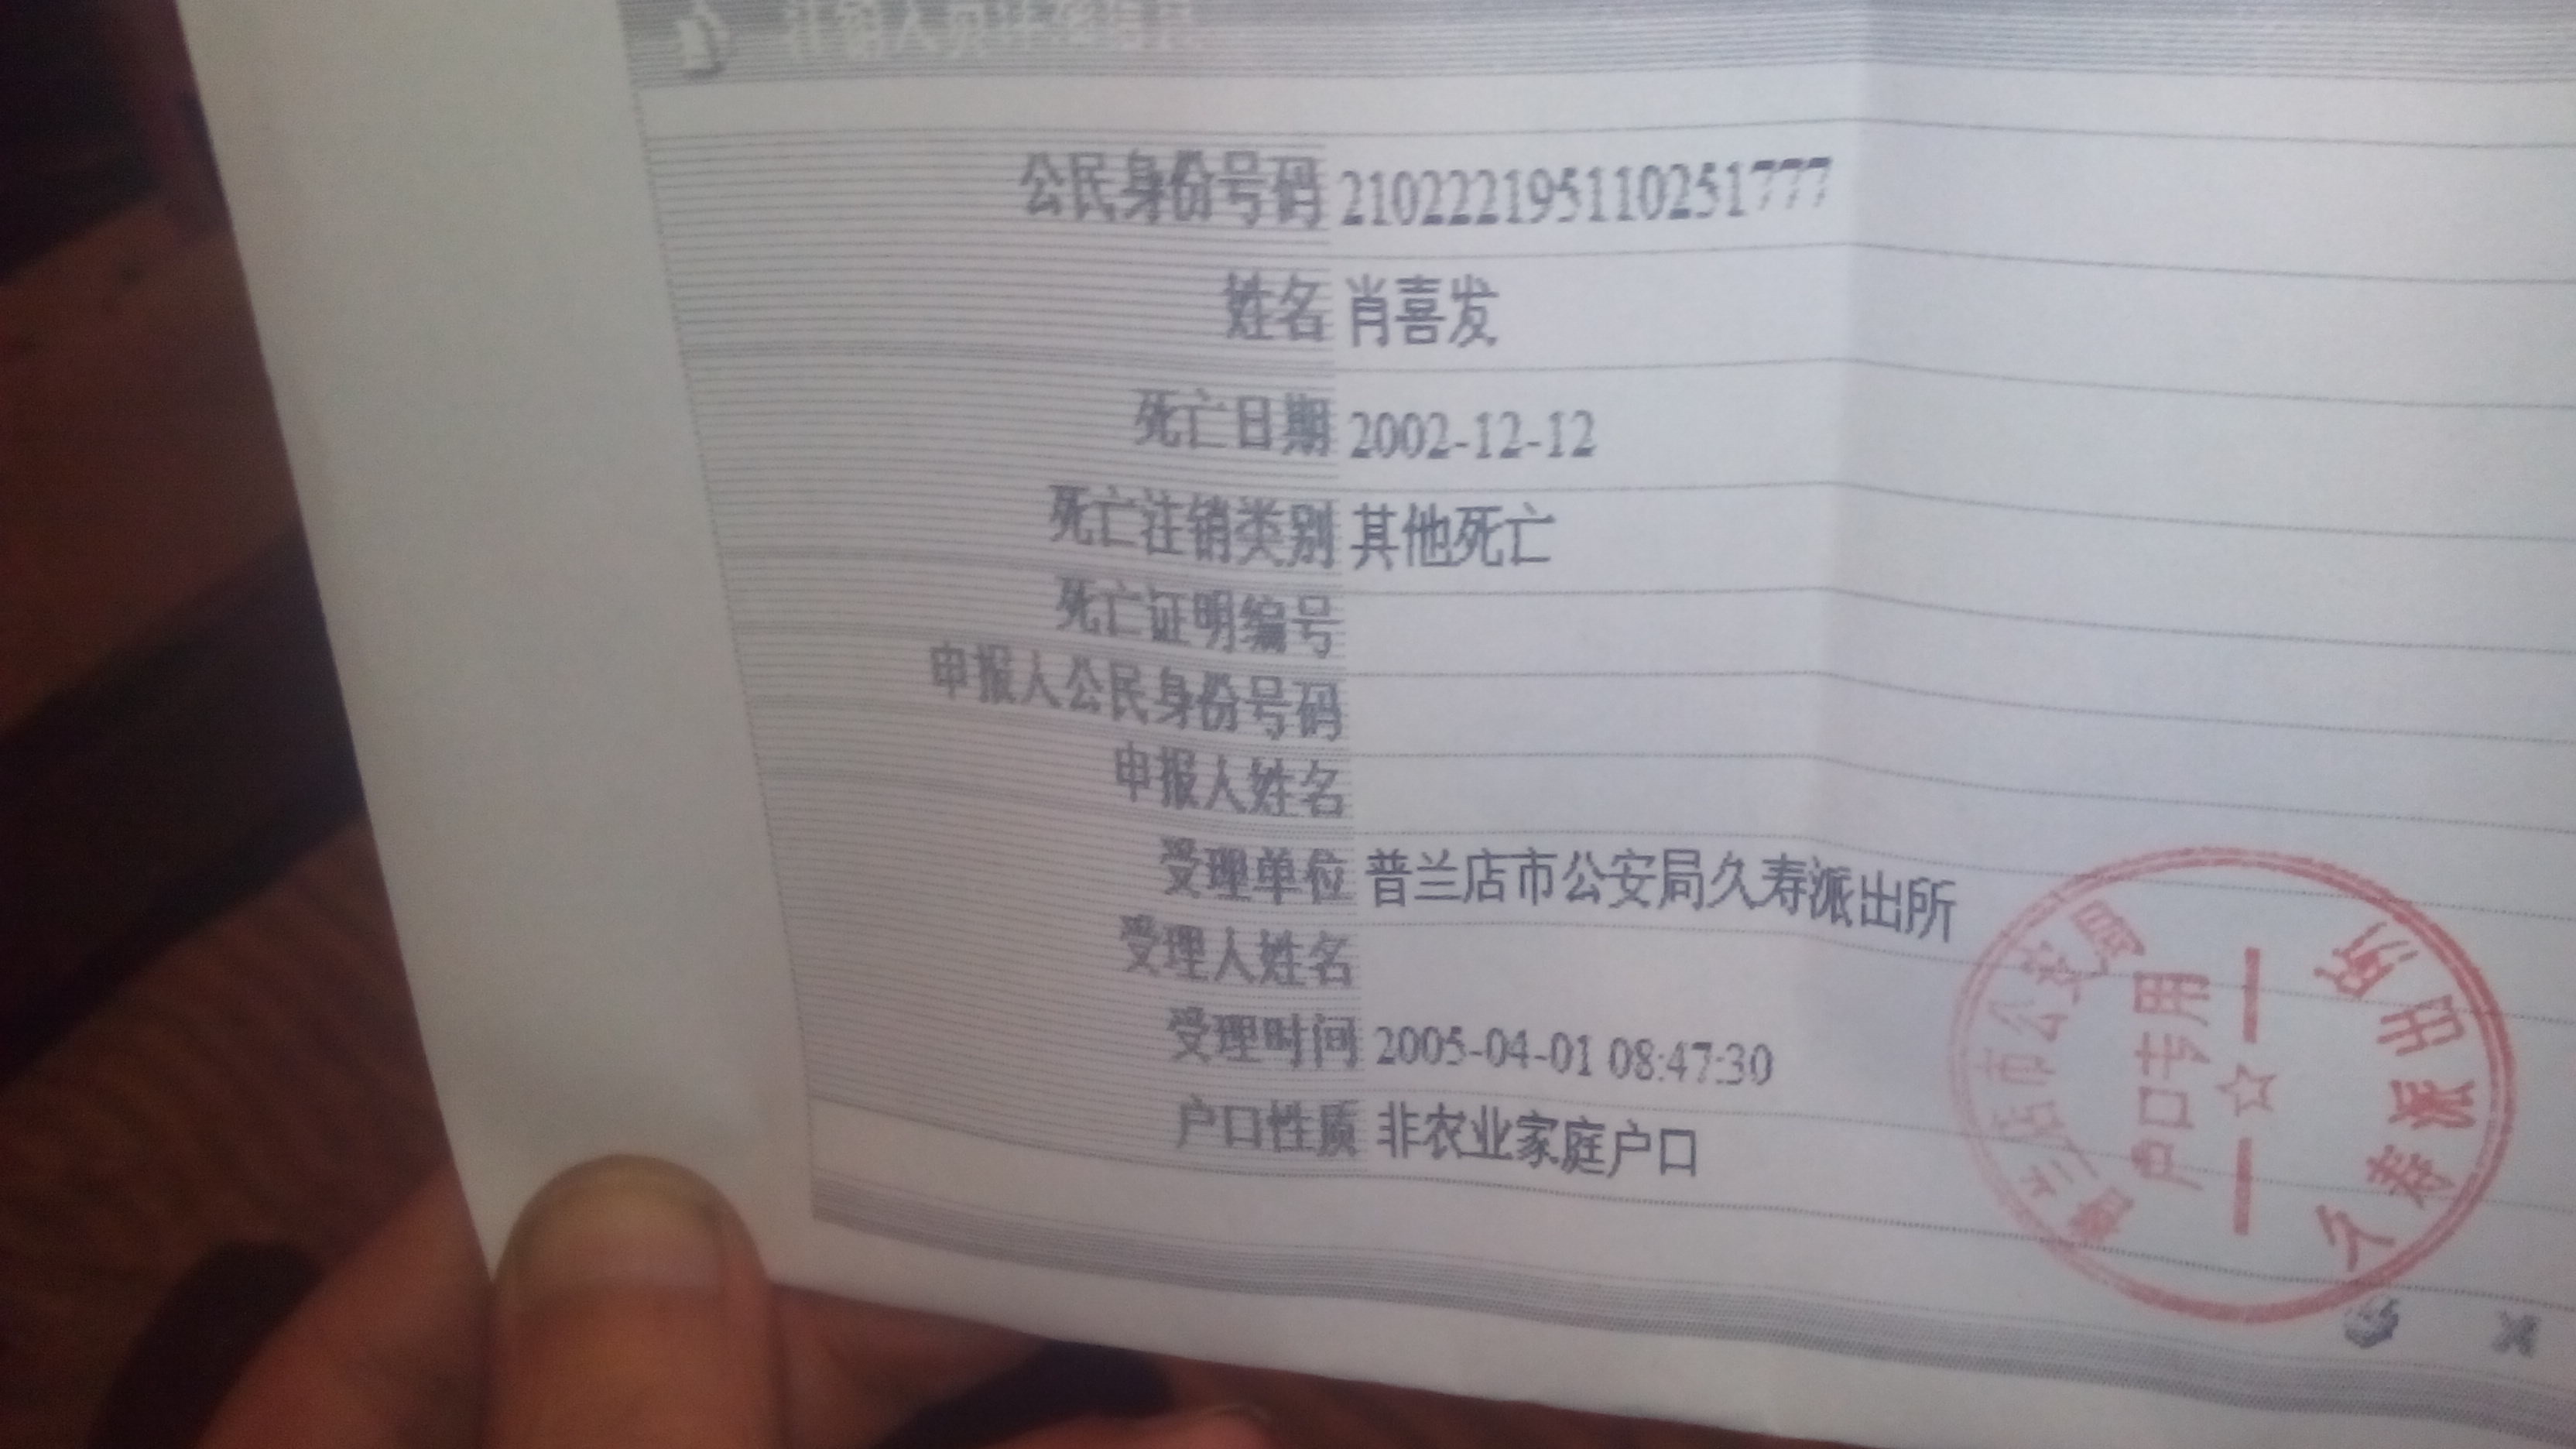 注销人员详细信息
公民身份号码 210222195110251777
姓名 肖喜发
死亡日期 2002-12-12
死亡注销类别 其他死亡
死亡证明编号
申报人公民身份号码
申报人姓名
受理单位 普兰店市公安局久寿派出所
受理人姓名
受理时间 2005-04-01 08:47:30
户口性质 非农业家庭户口
普兰店市公安局
户口专用
久寿派出所